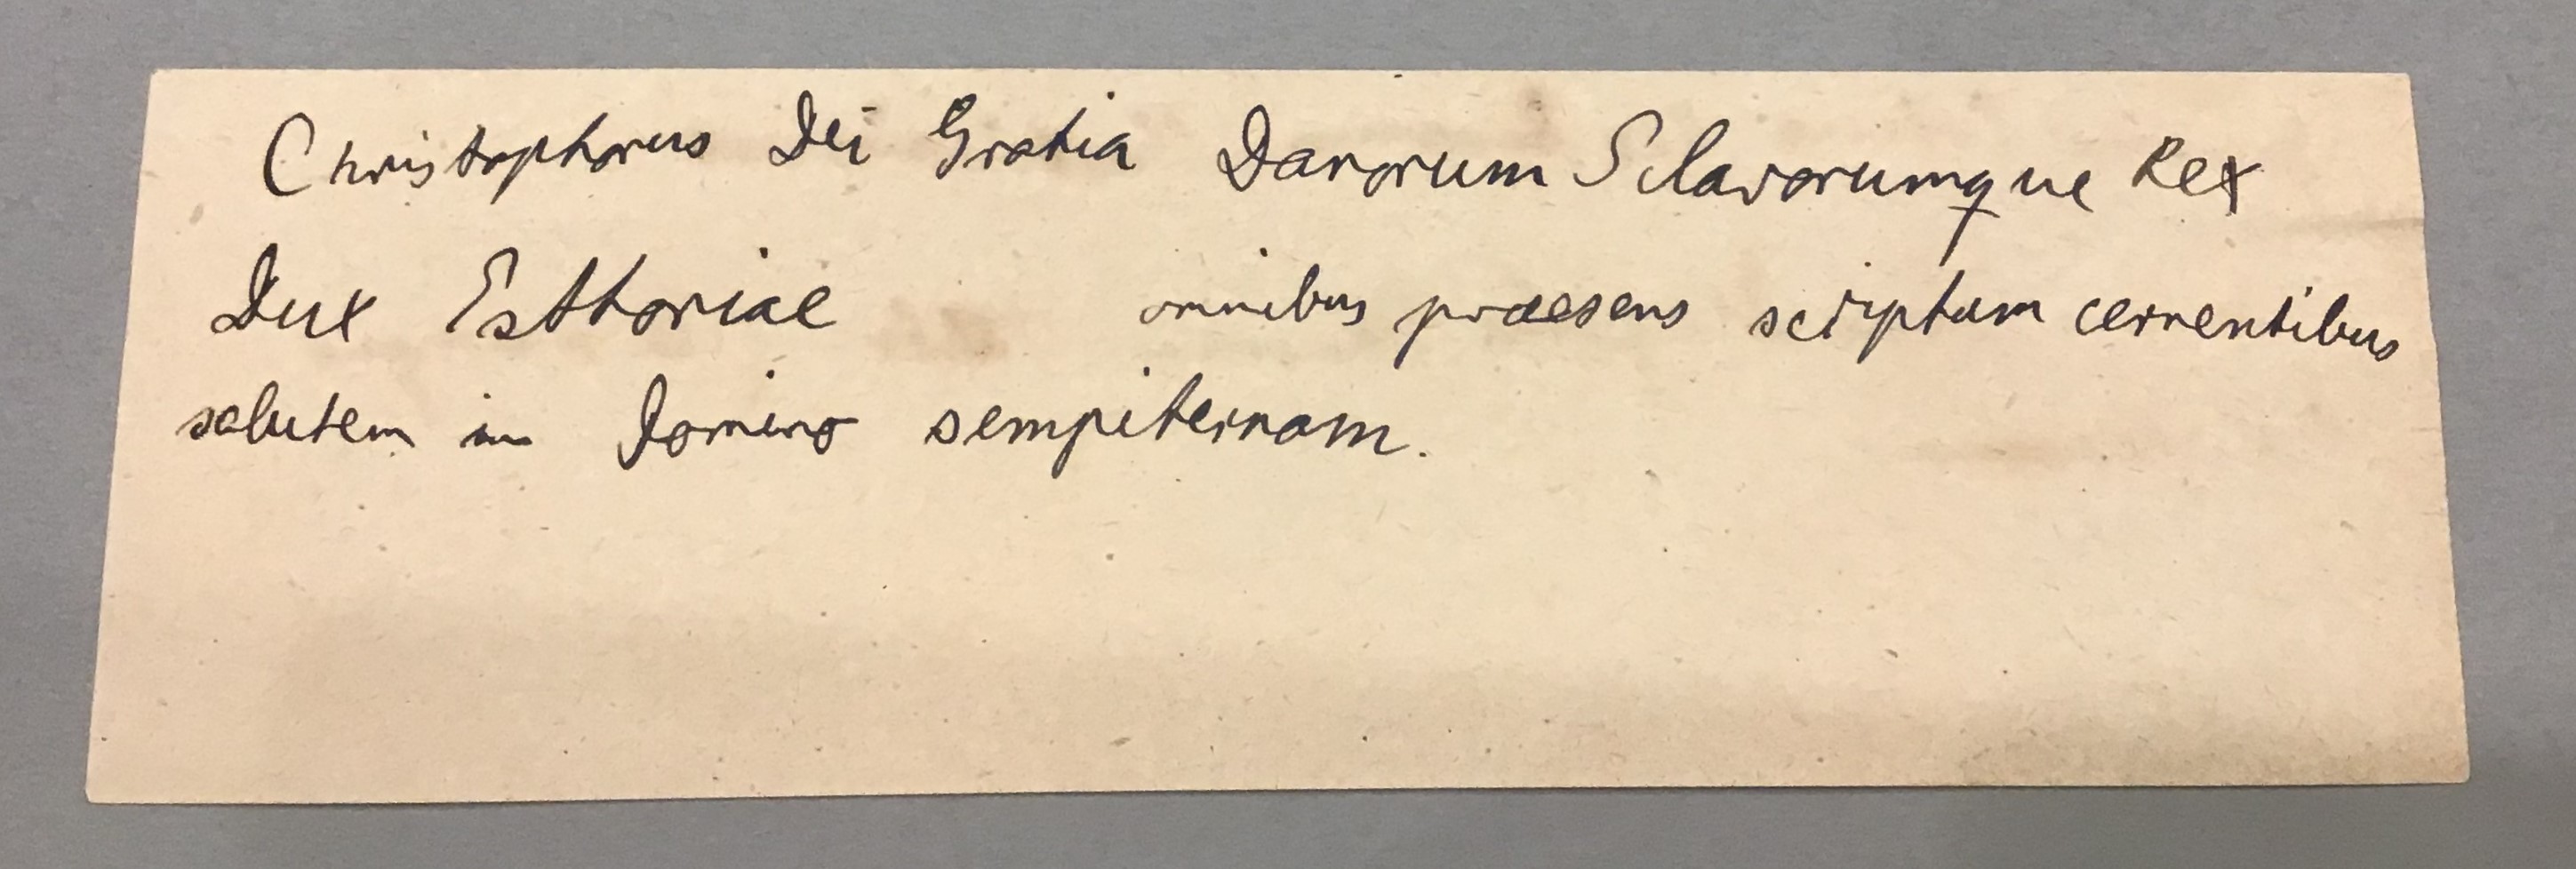 Christophorus Dei Gratia Danorum Sclavorumque Rex
Dux Esthoniae omnibus praesens scriptum cernentibus
salutem in Domino sempiternam.